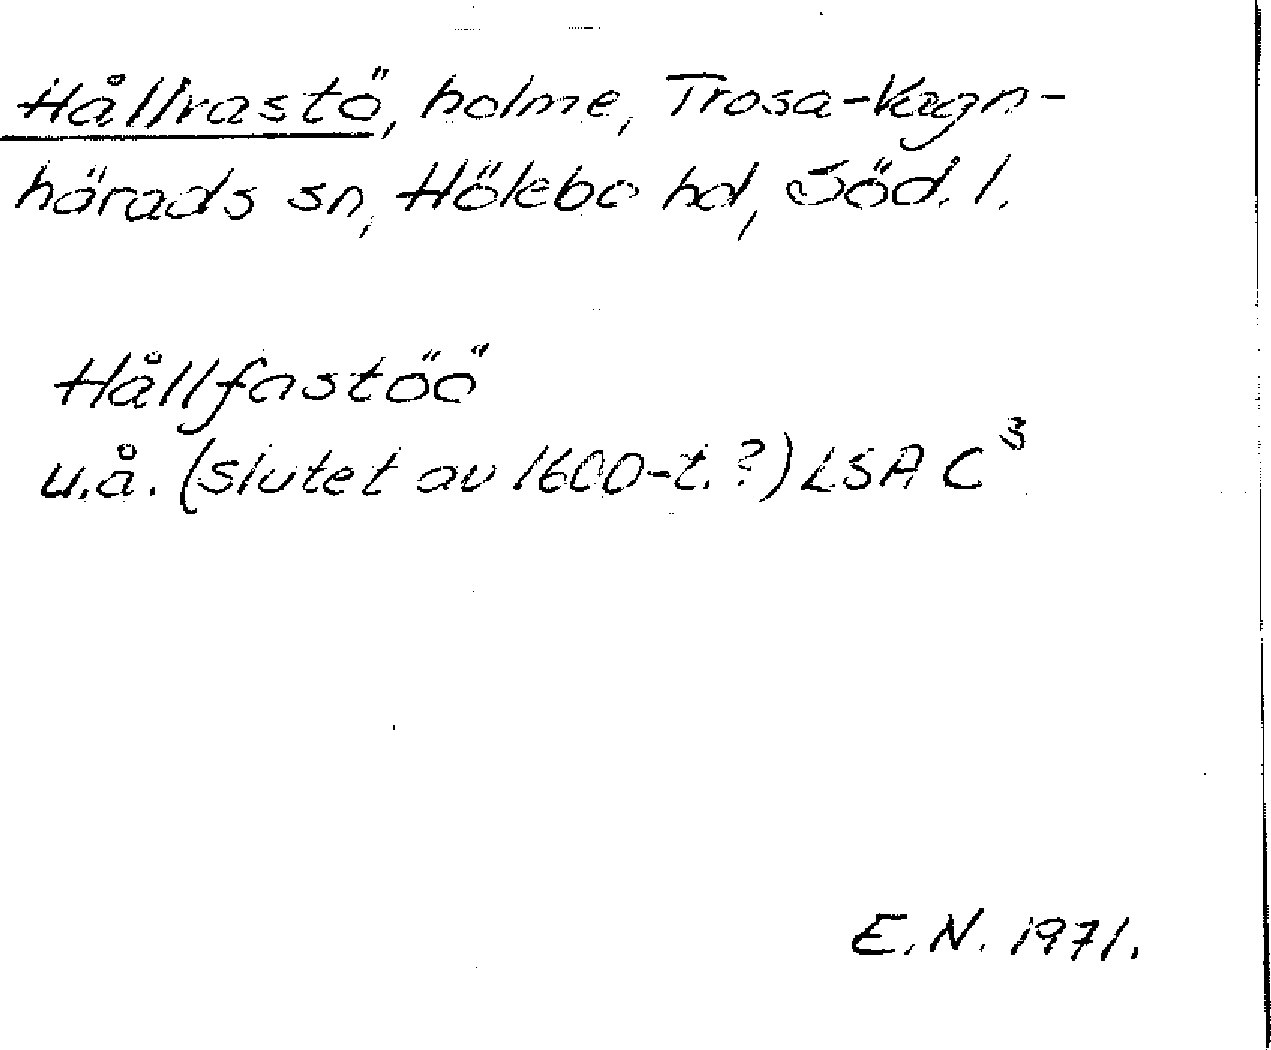 Hållrastö, holme, Trosa-Vagn-
härads sn, Hölebo hd, Söd. l.
Hållfastöö
u.å. (slutet av 1600-t.?) LSA C³
E.N. 1971.